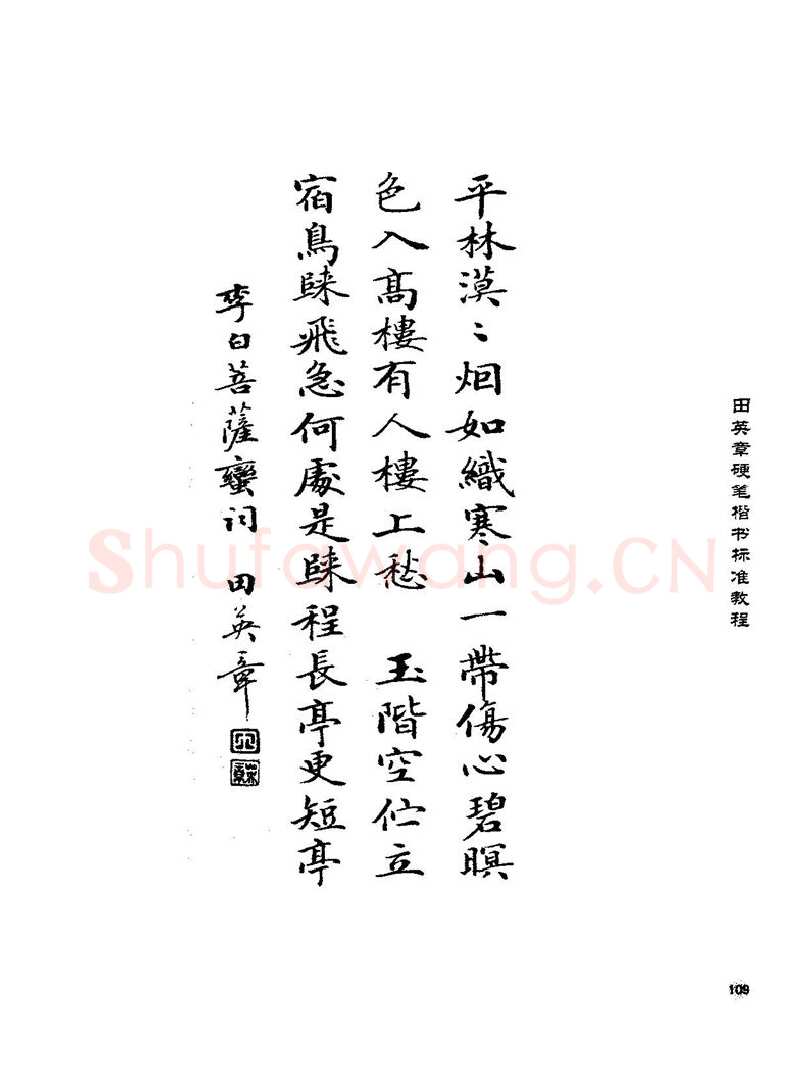 平林漠〻烟如織寒山一帶傷心碧暝
色入高樓有人樓上愁 玉階空伫立
宿鳥歸飛急何處是歸程長亭更短亭
李白菩薩蠻詞 田英章
田英章硬笔楷书标准教程
Shufawang.CN
109